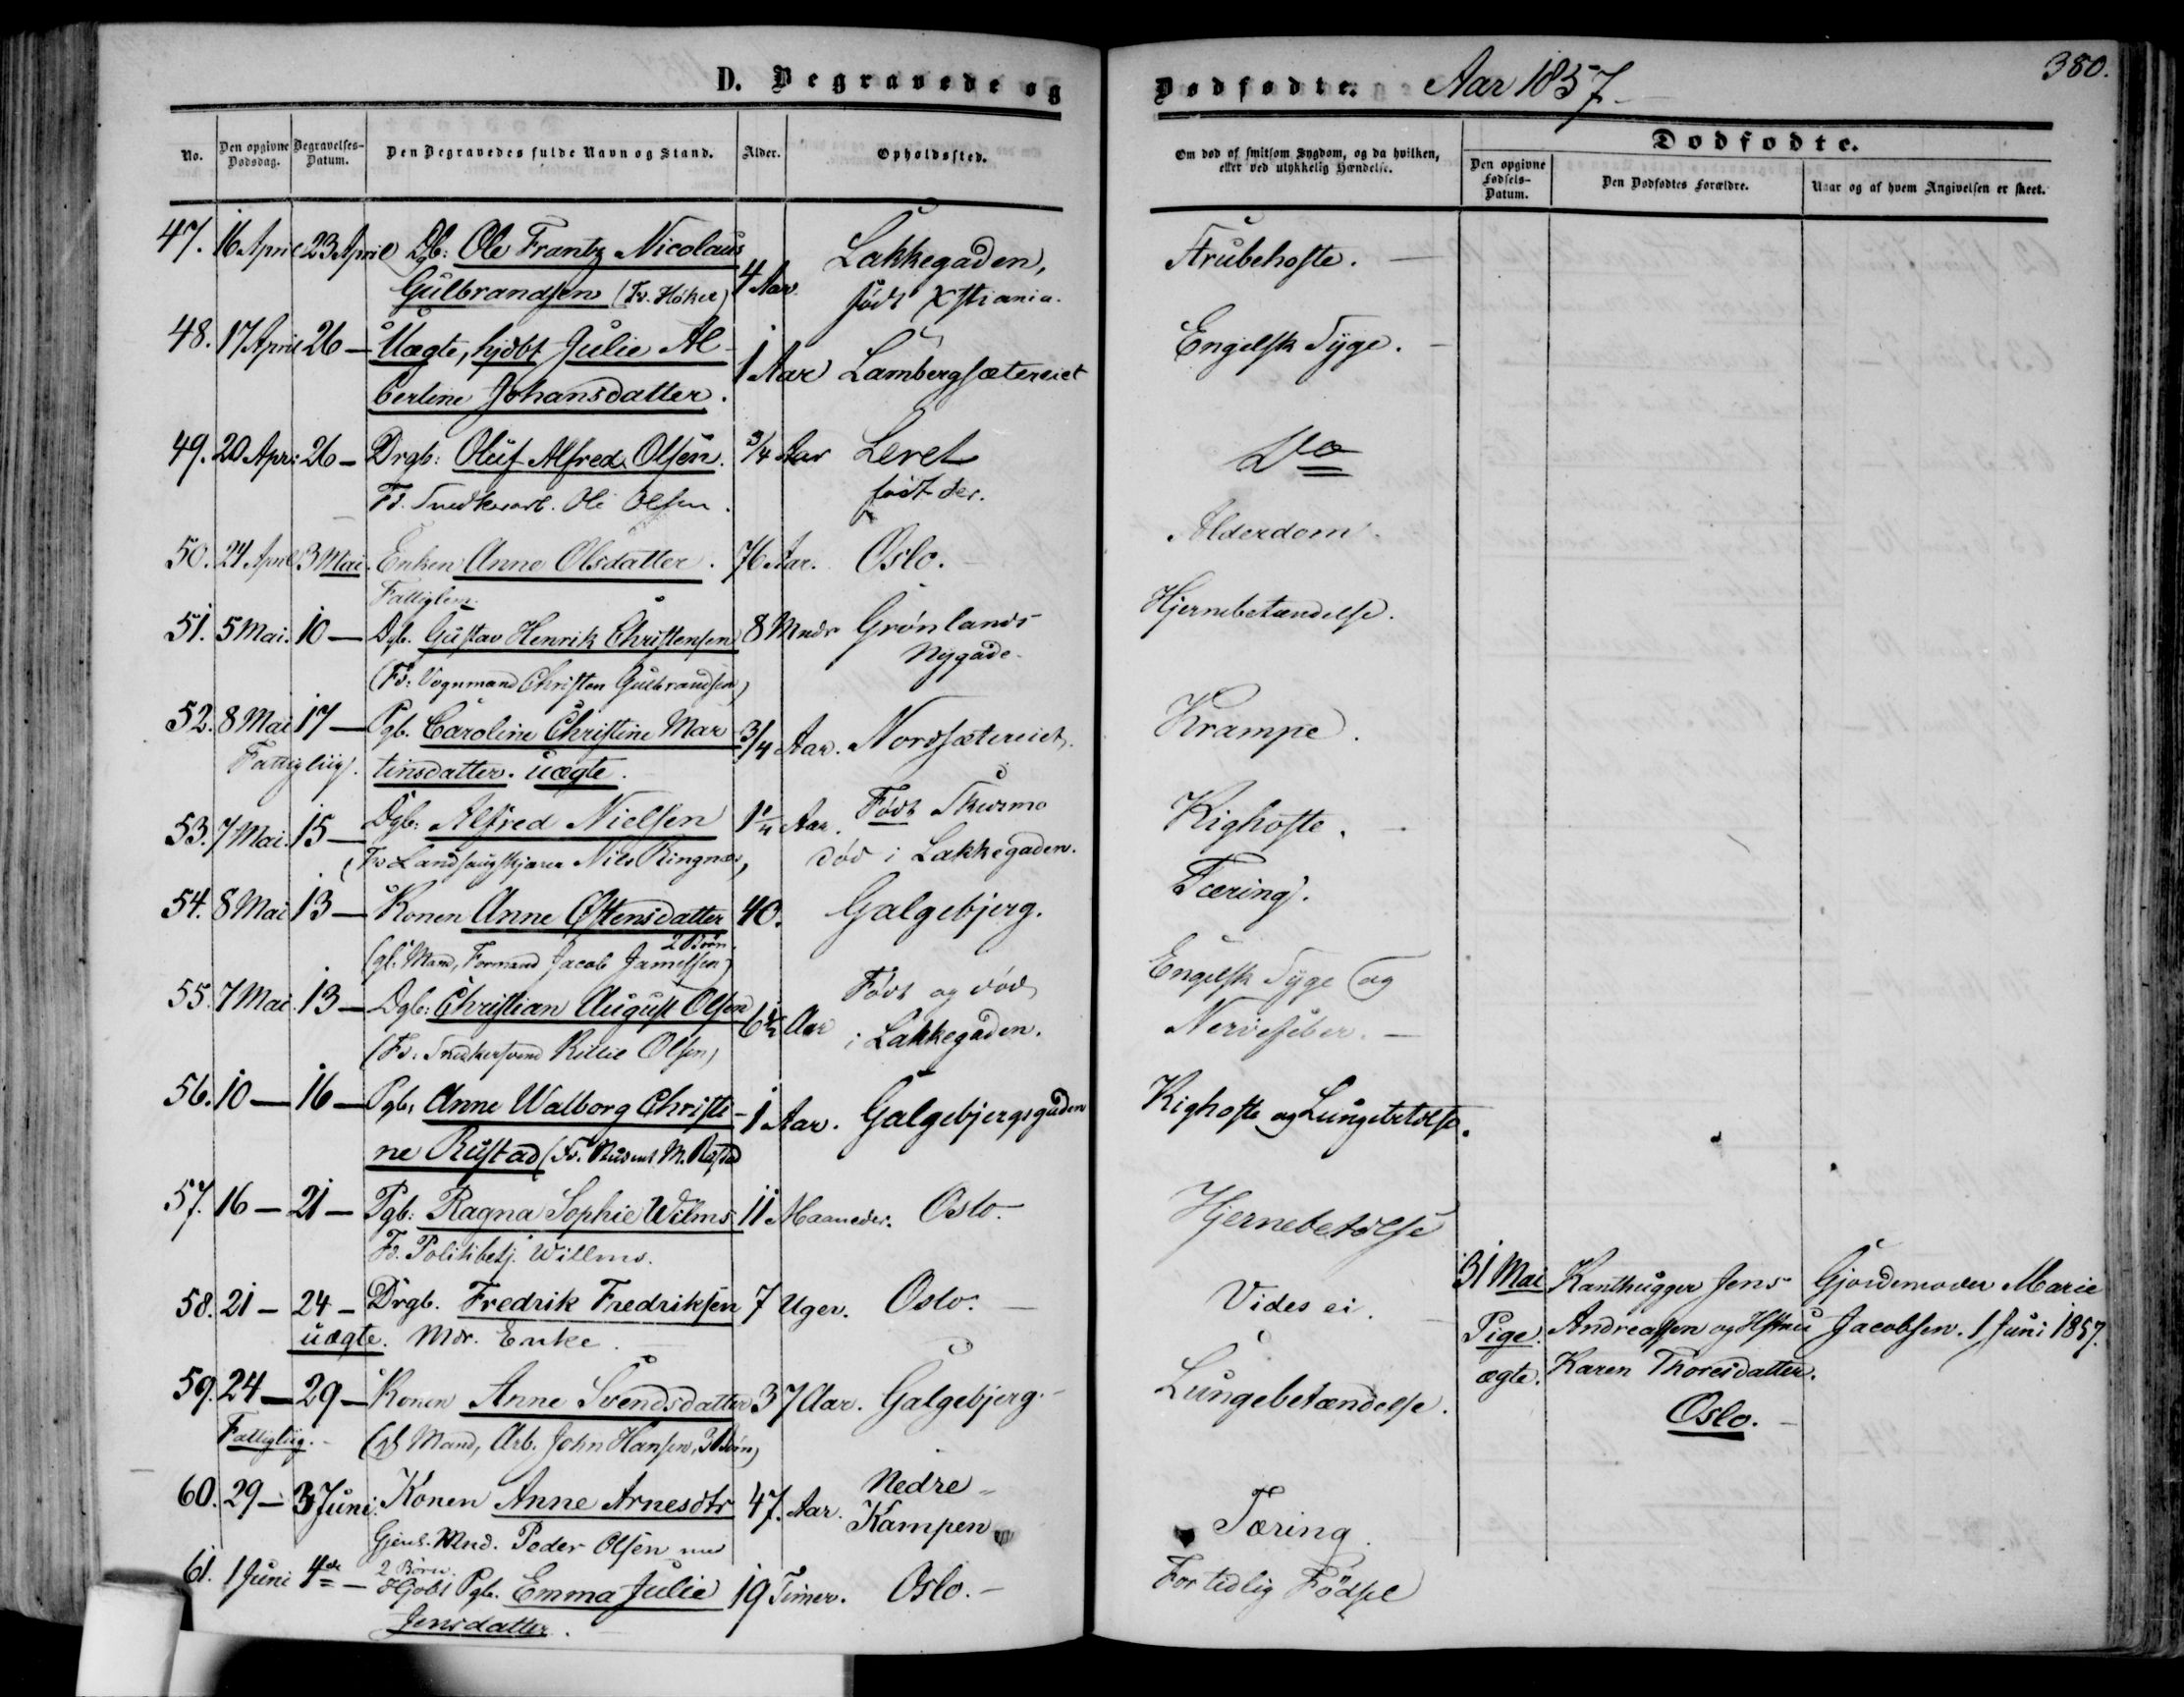 D. Begravede og
Dødfødte. Aar 1857
380.
No.
Den opgivne Dødsdag.
Begravelses-Datum.
Den Begravedes fulde Navn og Stand.
Alder.
Opholdssted.
Om død af smitsom Sygdom, og da hvilken, eller ved ulykkelig Hændelse.
Dødfødte.
Den opgivne Fødsels-Datum.
Den Dødfødtes Forældre.
Naar og af hvem Angivelsen er skeet.
47. 16 April 23 April Dgb: Ole Frantz Nicolaus 4 Aar Lakkegaden, Strubehoste.
Gulbrandsen (Fr. Høker) født Xstiania.
48. 17 April 26 — Uægte, hjdbt Julie Al- 1 Aar Lambergsætereiet Engelsk Syge.
bertine Johansdatter.
49. 20 Apr: 26 — Drgb: Oluf Alfred Olsen. 3/4 Aar Leret Do
Fd. Snedkerarb. Ole Olsen. født der.
50. 24 April 3 Mai Enken Anne Olsdatter. 76 Aar. Oslo. Alderdom.
Fattiglem.
51. 5 Mai. 10 — Dgb. Gustav Henrik Christensen 8 Mndr Grønlands Hjernebetændelse.
(Fd: Vognmand Christen Gulbrandsen) Nygade.
52. 8 Mai 17 — Pgb. Caroline Christine Mar 3/4 Aar. Nordsætereiet. Krampe.
Fattigliig. tinsdatter. uægte.
53. 7 Mai. 15 — Dgb: Alfred Nielsen 1 1/4 Aar. Født Skursmo Kighoste.
Nils Ringnæs, død i Lakkegaden.
54. 8 Mai 13 — Konen Anne Østensdatter 40. Galgebjerg. Tæring.
2 Børn.
(gl. Mand, Formand Jacob Jamelsen)
55. 7 Mai. 13 — Dgb: Christian August Olsen 6 1/2 Aar Født og død Engelsk Syge og
(Fd: Snedkersvend Killie Olsen) i Lakkegaden. Nervefeber. —
56. 10 — 16 — Pgb, Anne Walborg Christi- 1 Aar. Galgebjergsgaden Kighoste og Lungebetdlse.
ne Rustad (Fd. M. Rustad
57. 16 — 21 — Pgb: Ragna Sophie Wilms 11 Maaneder. Oslo. Hjernebetdlse
Fd. Politibetj. Willms.
58. 21 — 24 — Drgb. Fredrik Fredriksen 7 Uger. Oslo. Vides ei.
uægte. Mdr. Enke.
59. 24 — 29 — Konen Anne Svendsdatter 37 Aar. Galgebjerg. Lungebetændelse.
Fattigliig. (gl Mand, Arb. John Hansen, 3 Børn)
60. 29 — 3 Juni. Konen Anne Arnesdtr 47. Aar. Nedre Kampen Tæring
Gjenl. Mnd. Peder Olsen med
2 Børn.
61. 1 Juni 4de — Hjdbt Pgb. Emma Julie 19 Timer. Oslo. For tidlig Fødsel
Jensdatter.
31 Mai Kanthugger Jens Gjordemoder Marie
Pige. Andreassen og Hstru Jacobsen. 1 Juni 1857.
ægte. Karen Thoresdatter.
Oslo.